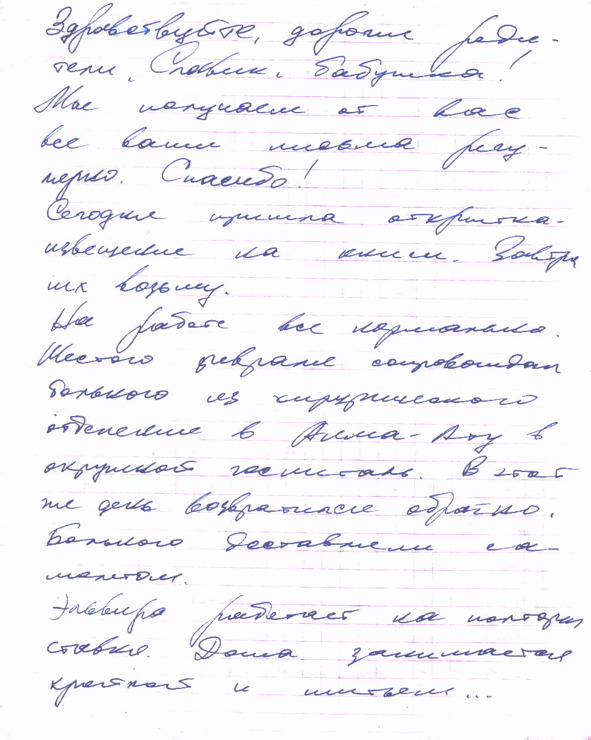 Здравствуйте, дорогие роди-
тели, Славик, бабушка!
Мы получаем от вас
все ваши письма регу-
лярно. Спасибо!
Сегодня пришла открытка-
извещение на книги. Завтра
их возьму.
На работе все нормально.
Шестого февраля сопровождал
больного из хирургического
отделение в Алма-Ату в
окружной госпиталь. В этот
же день возвратился обратно.
Больного доставили са-
молетом.
Эльвира работает на полторы
ставки. Дома занимается
кройкой и шитьем...